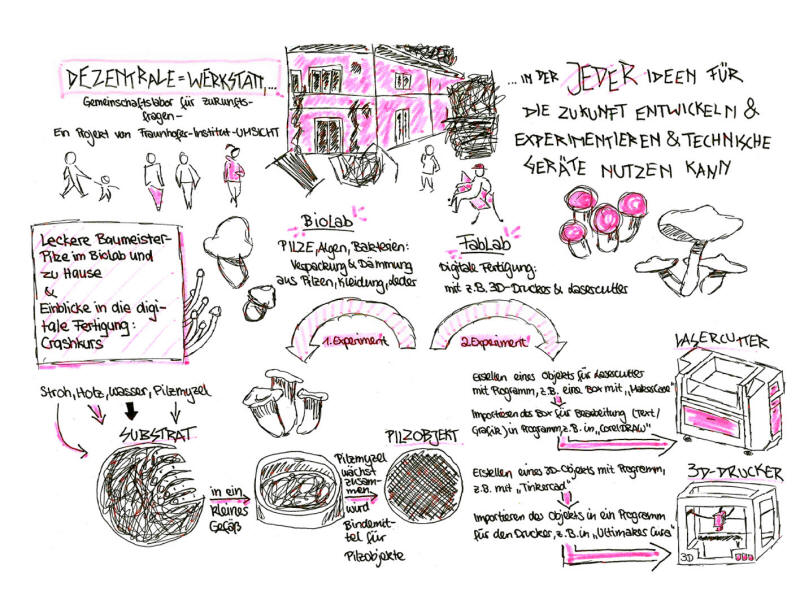 DEZENTRALE = WERKSTATT,...
Gemeinschaftslabor für zukunfts-
fragen -
Ein Projekt von Fraunhofer-Institut-UMSICHT
... IN DER JEDER IDEEN FÜR
DIE ZUKUNFT ENTWICKELN &
EXPERIMENTIEREN & TECHNISCHE
GERÄTE NUTZEN KANN
Leckere Baumeister-
Pilze im BioLab und
zu Hause
&
Einblicke in die digi-
tale Fertigung:
Crashkurs
BioLab
PILZE, Algen, Bakterien:
Verpackung & Dämmung
aus Pilzen, Kleidung, Leder
FabLab
Digitale Fertigung:
mit z.B. 3D-Drucker & Lasercutter
1. Experiment
2. Experiment
Stroh, Holz, Wasser, Pilzmyzel
SUBSTRAT
in ein
kleines
Gefäß
Pilzmyzel
wächst
zusam-
men &
wird
Bindemit-
tel für
Pilzobjekte
PILZOBJEKT
LASERCUTTER
Erstellen eines Objekts für Lasercutter
mit Programm, z.B. eine Box mit „MakeaCase"
Importieren der Box für Bearbeitung (Text/
Grafik) in Programm, z.B. in „CorelDRAW"
3D-DRUCKER
Erstellen eines 3D-Objekts mit Programm,
z.B. mit „Tinkercad"
Importieren des Objekts in ein Programm
für den Drucker, z.B. in „Ultimaker Cura"
3D